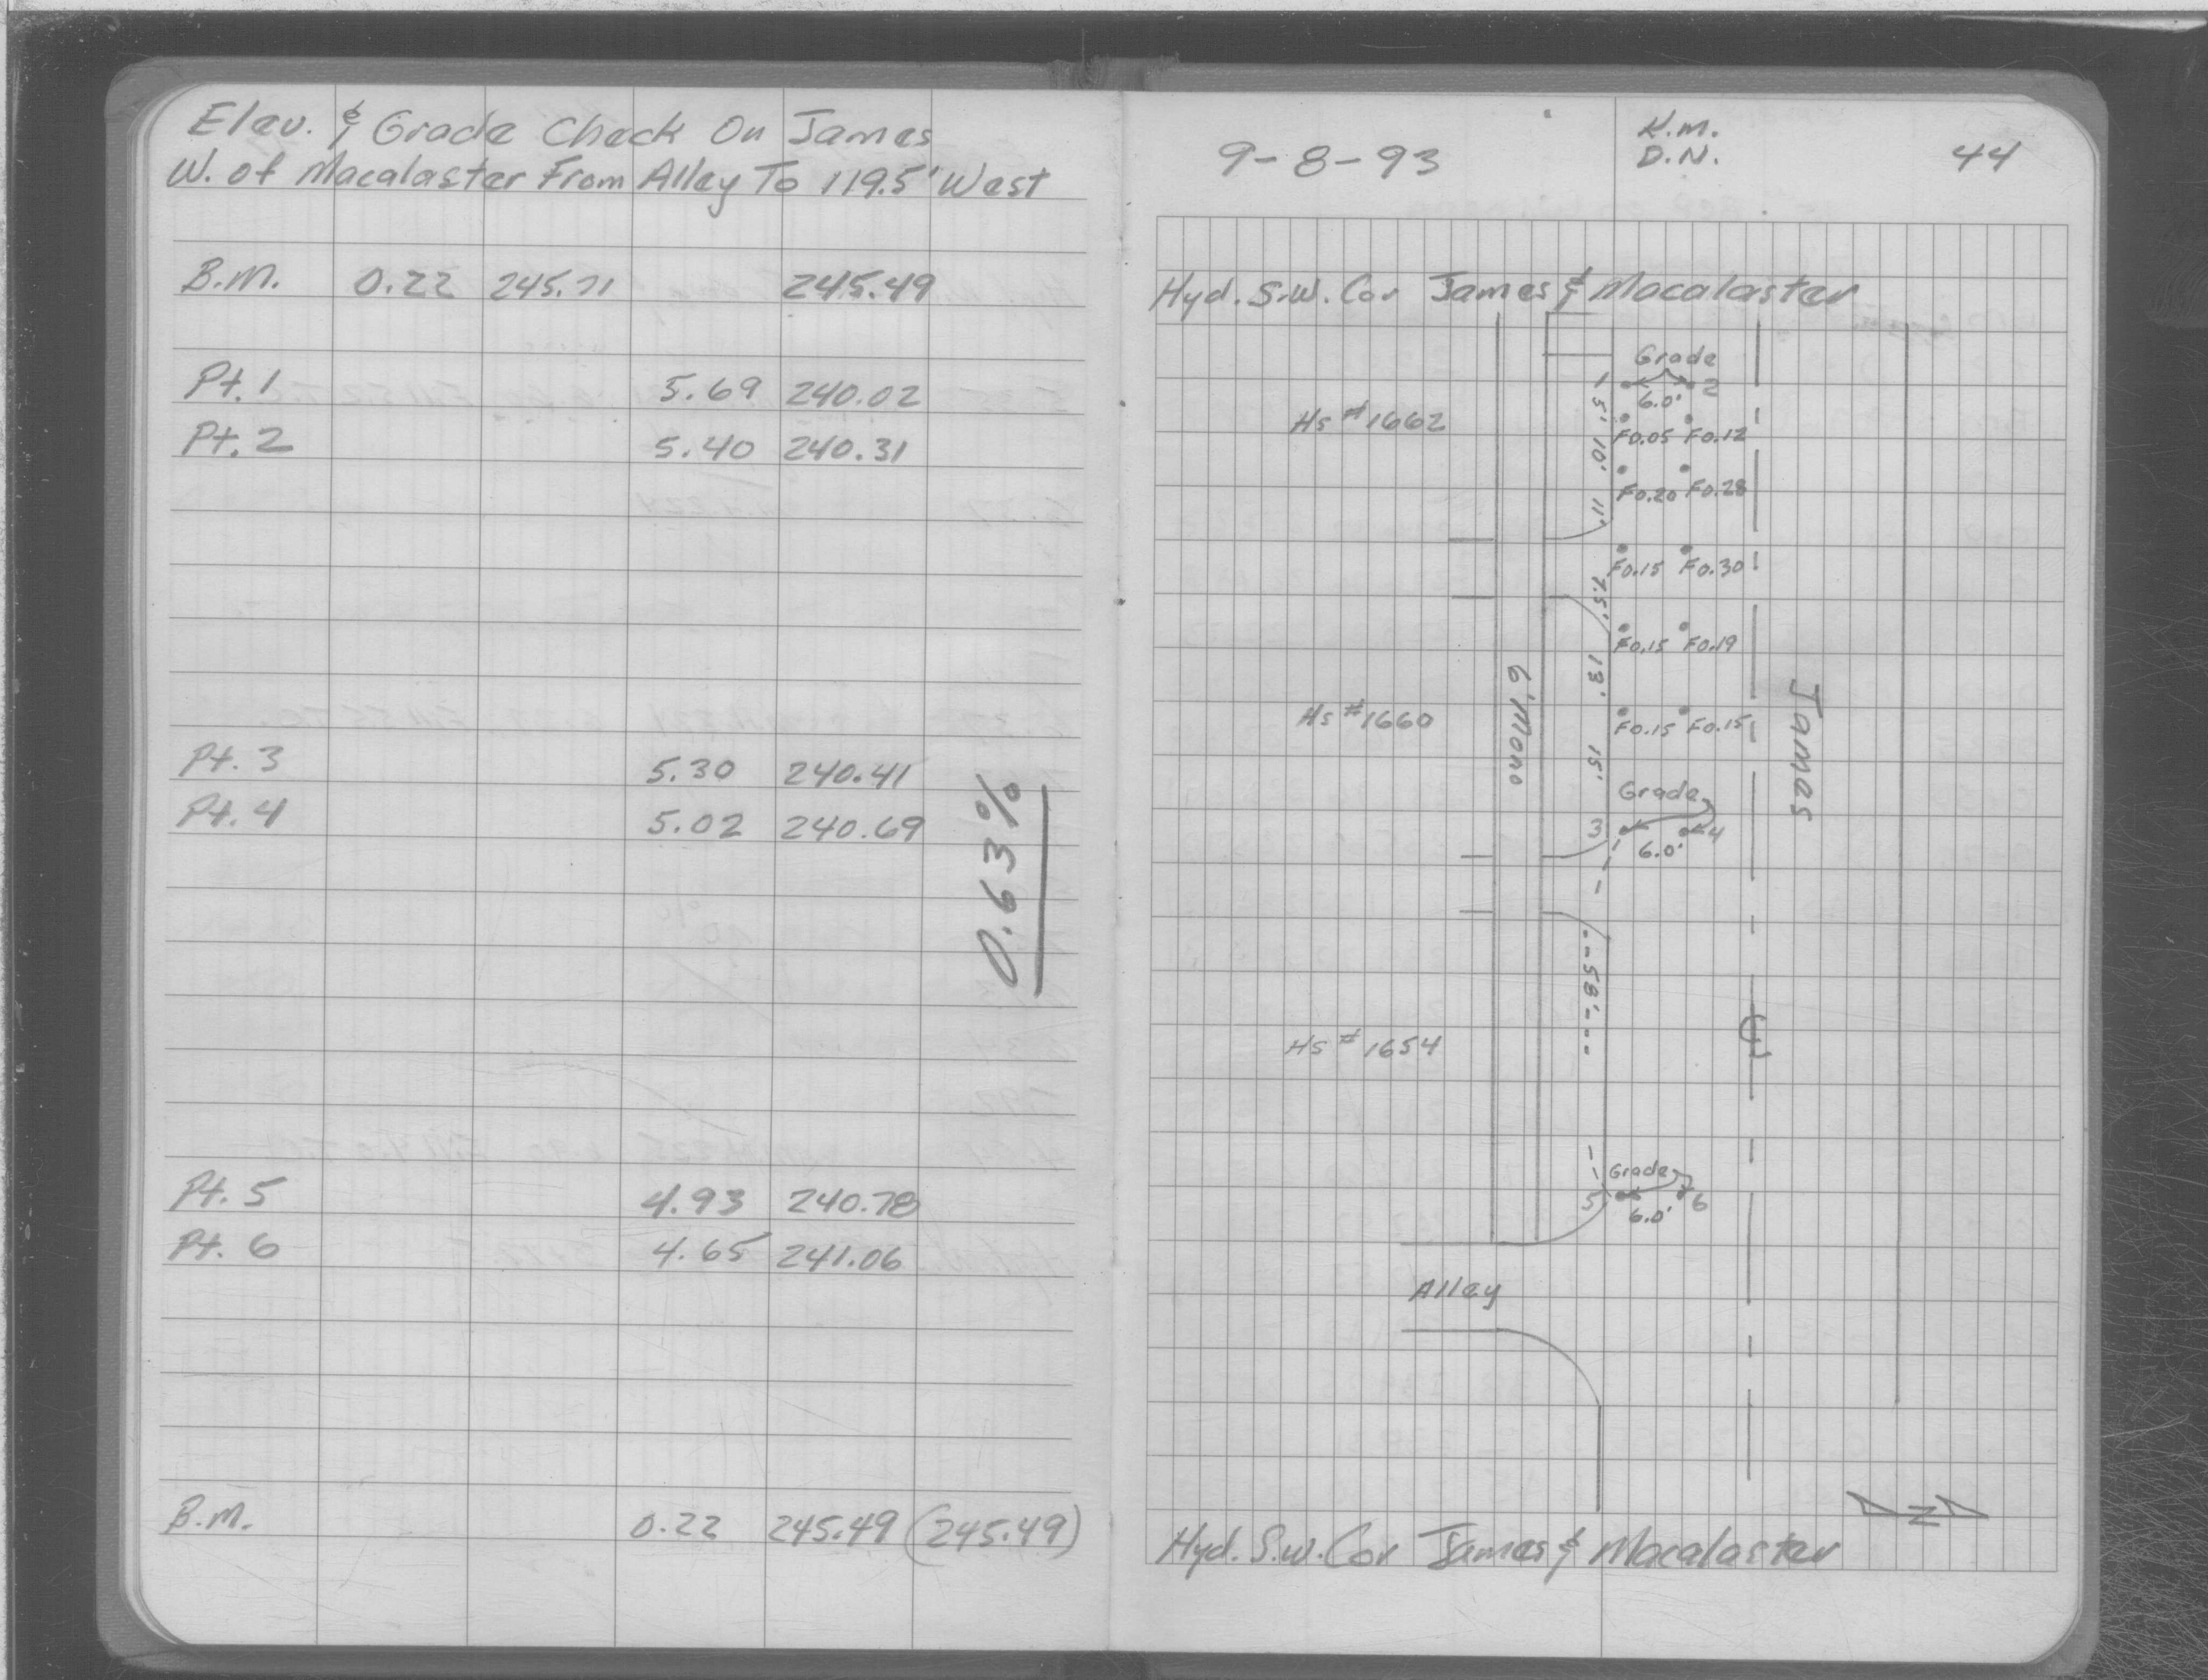 Elev. & Grade Check On James
W. of Macalaster From Alley To 119.5' West
B.M. 0.22 245.71 245.49
Pt. 1 5.69 240.02
Pt. 2 5.40 240.31
Pt. 3 5.30 240.41
Pt. 4 5.02 240.69
0.63%
Pt. 5 4.93 240.78
Pt. 6 4.65 241.06
B.M. 0.22 245.49 (245.49)
9-8-93
K.M.
D.N.
44
Hyd. S.W. Cor James & Macalaster
Grade
1 2
6.0'
5'
Hs #1662
F0.05 F0.12
10'
F0.20 F0.28
11'
F0.15 F0.30
7.5'
F0.15 F0.19
13'
6' Mono
Hs #1660
F0.15 F0.15
James
15'
Grade
3 4
6.0'
58'
Hs #1654
Grade
5 6
6.0'
Alley
N
Hyd. S.W. Cor James & Macalaster